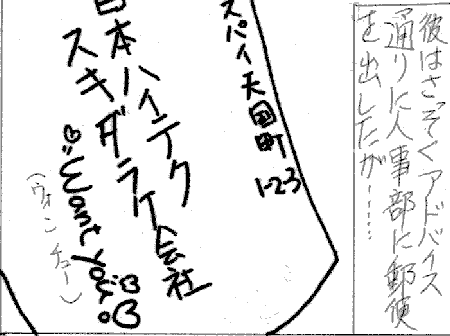 彼はさっそくアドバイス
通りに人事部に郵便
を出したが……
スパイ天国町
1-2-3
日本ハイテク
スキダラケー会社
Want you
(ウォンチュー)